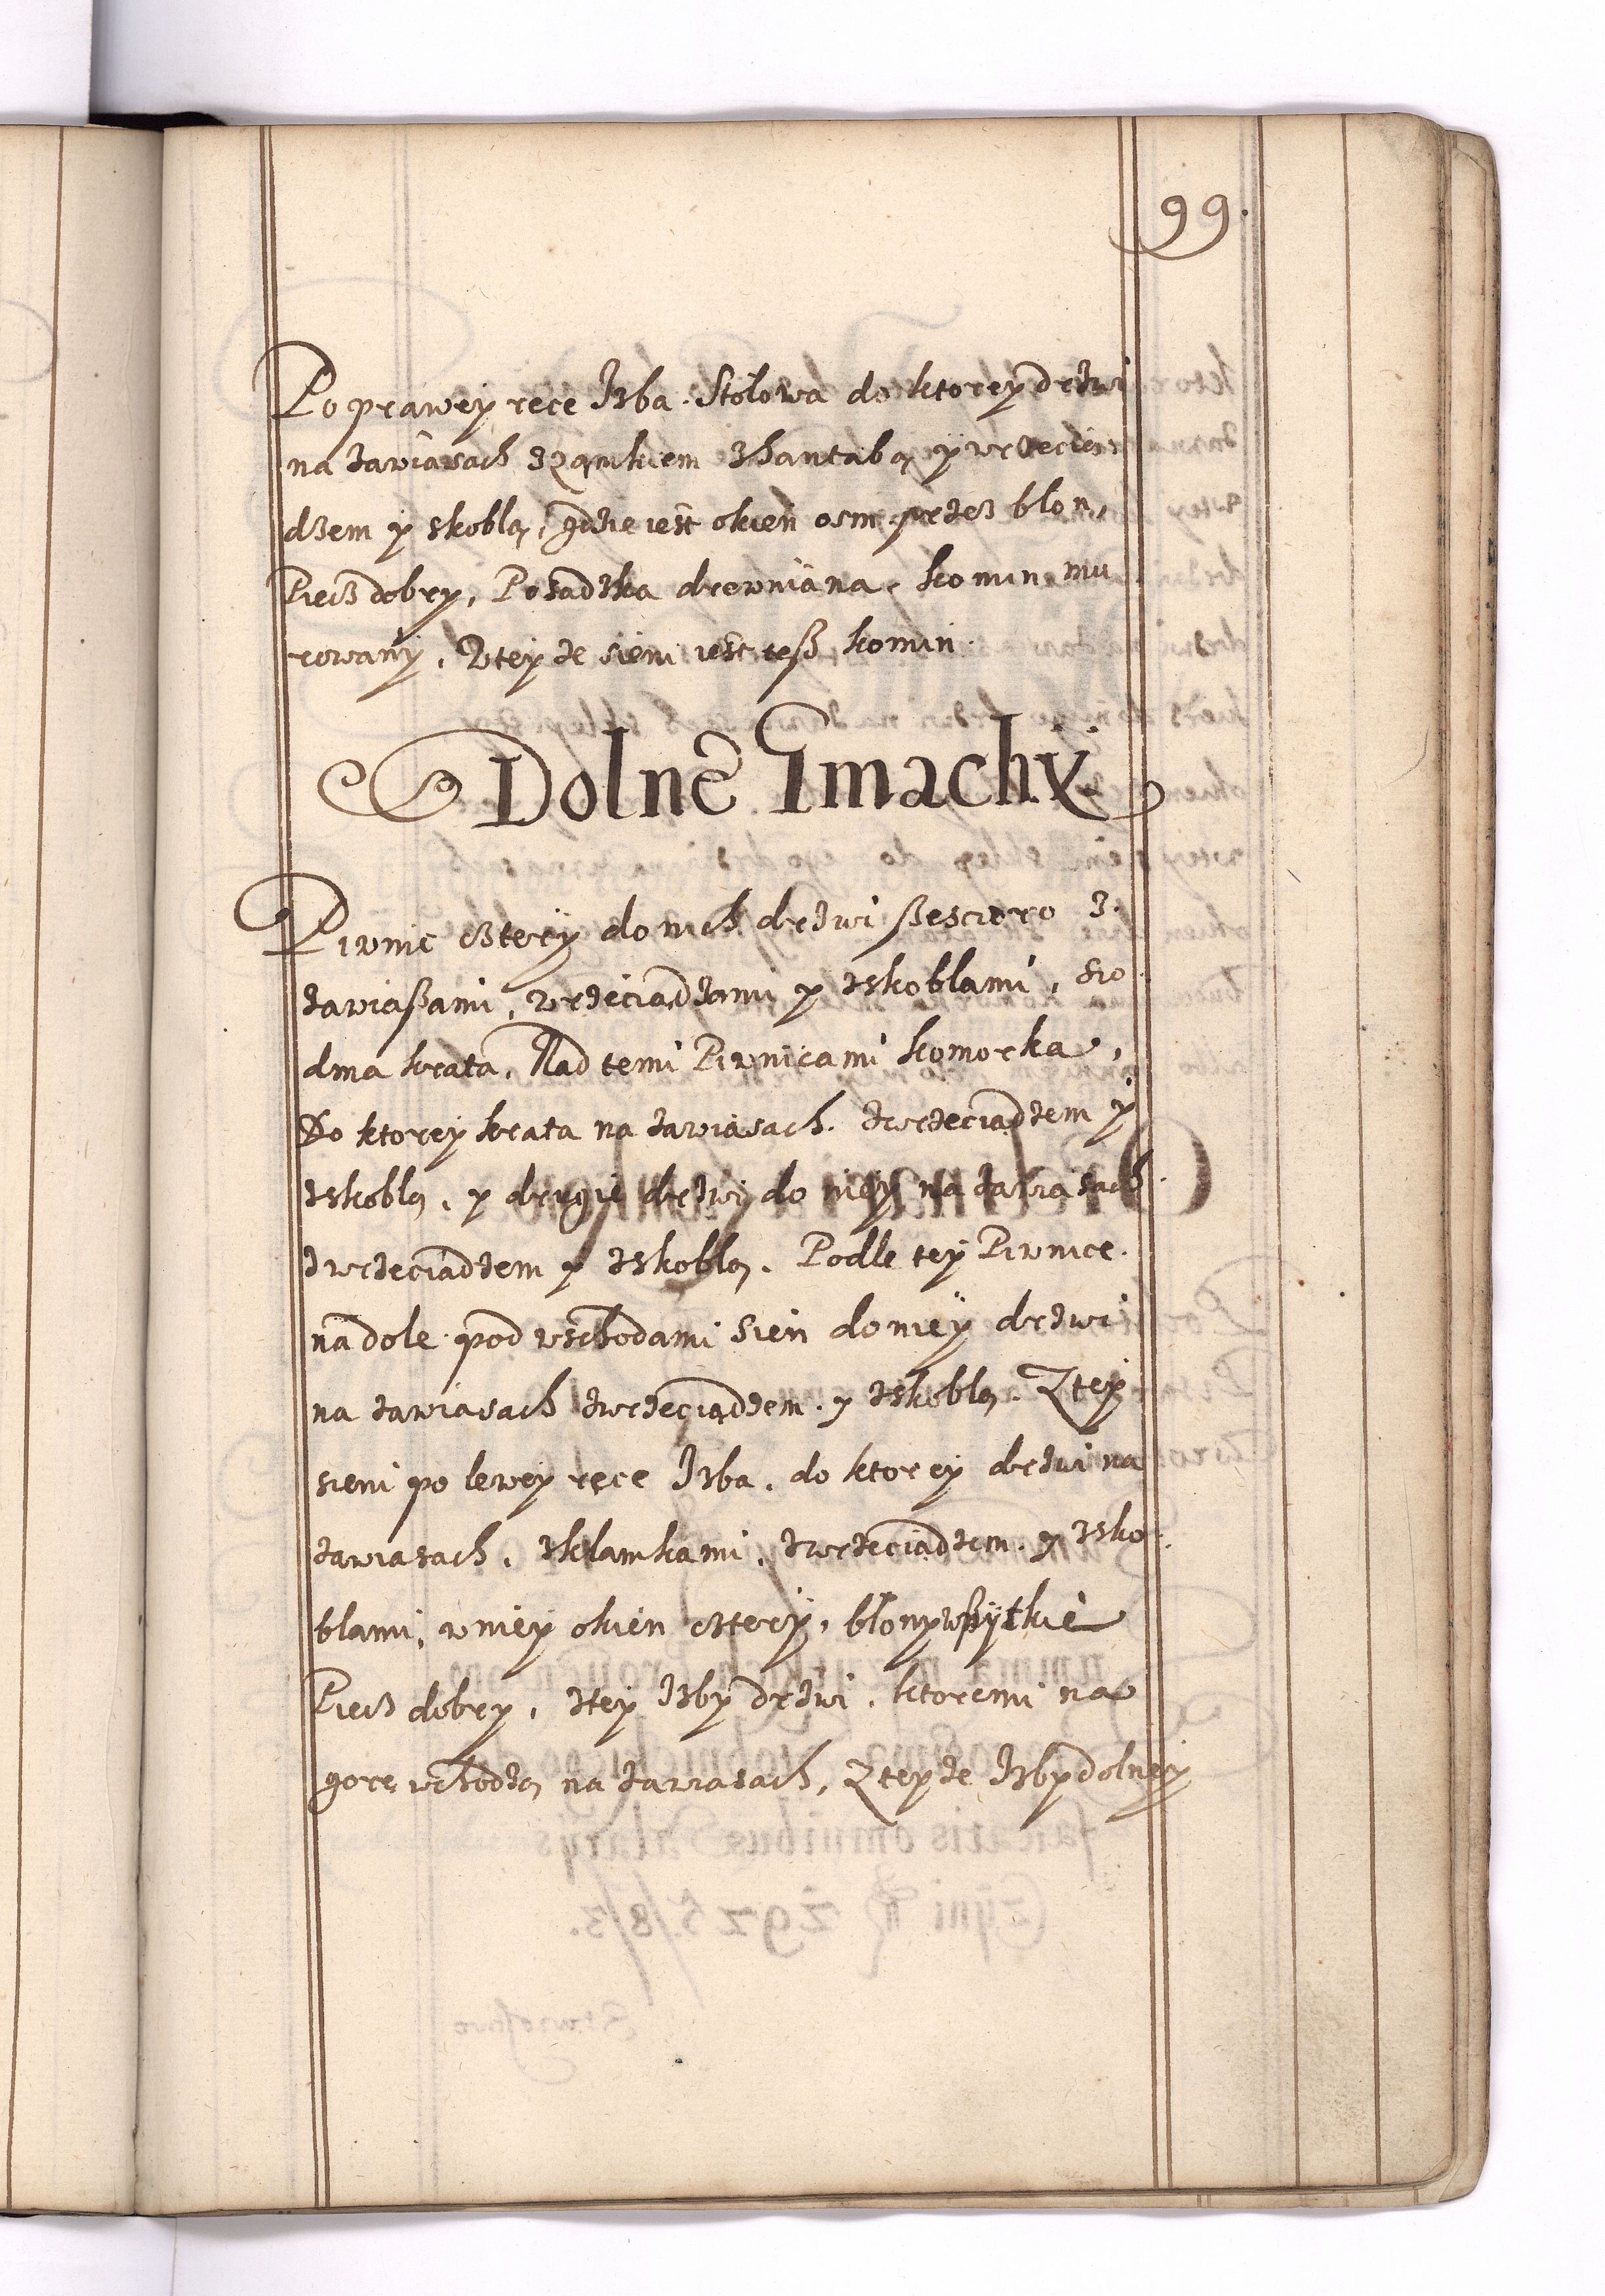 99.
Po prawey ręce Izba Stołowa do ktorey drzwi
na zawiasach z zamkiem z hantabą y wrzecią
dzem y skoblą, gdzie iest okien osm przez błon,
Piecz dobry, Posadzka drewniana, komin mu
rowany, W tey ze sieni iest tesz komin.
Dolne Gmachy.
Piwnic cztery do nich drzwi szescioro z
zawiaszami, wrzeciądzami y z skoblami, sio
dma krata. Nad temi Piwnicami komorka,
Do ktorey krata na zawiasach z wrzeciądzem y
z skoblą, y drugie drzwi do niey na zawiasach
z wrzeciądzem y z skoblą. Podle tey Piwnice
na dole pod wschodami sien do niey drzwi
na zawiasach z wrzeciądzem y z skoblą. Z tey
sieni po lewey ręce Izba, do ktorey drzwi na
zawiasach, z klamkami, z wrzeciądzem y z sko
blami, w niey okien cztery, błony wszytkie
Piecz dobry, z tey Izby drzwi, ktoremi na
gorę wchodzą na zawiasach, Z tey ze Izby dolney